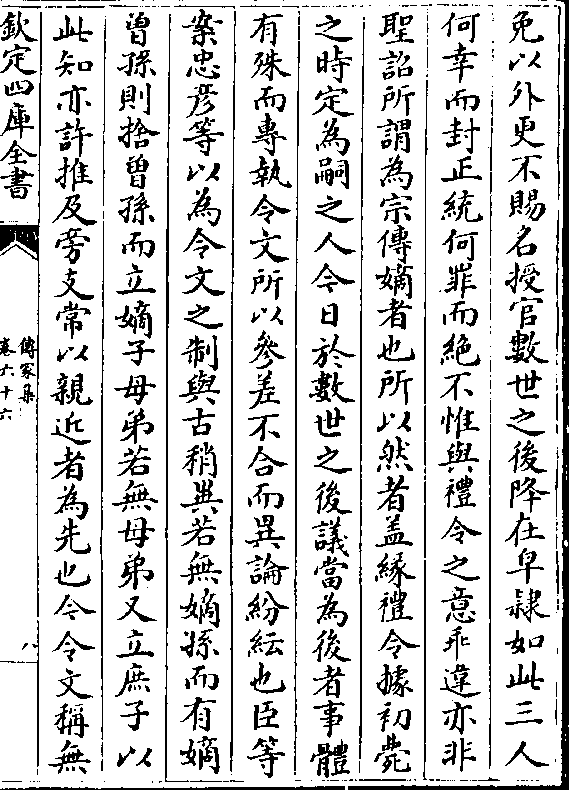 免以外更不賜名授官數世之後降在皁隸如此三人
何幸而封正統何罪而絶不惟與禮令之意乖違亦非
聖詔所謂為宗傳嫡者也所以然者盖縁禮令據初薨
之時定為嗣之人今日於數世之後議當為後者事體
有殊而專執令文所以參差不合而異論紛紜也臣等
案忠彦等以為令文之制與古稍異若無嫡孫而有嫡
曽孫則捨曽孫而立嫡子母弟若無母弟又立庶子以
此知亦許推及旁支常以親近者為先也今令文稱無
欽定四庫全書
傳家集
卷六十六
八